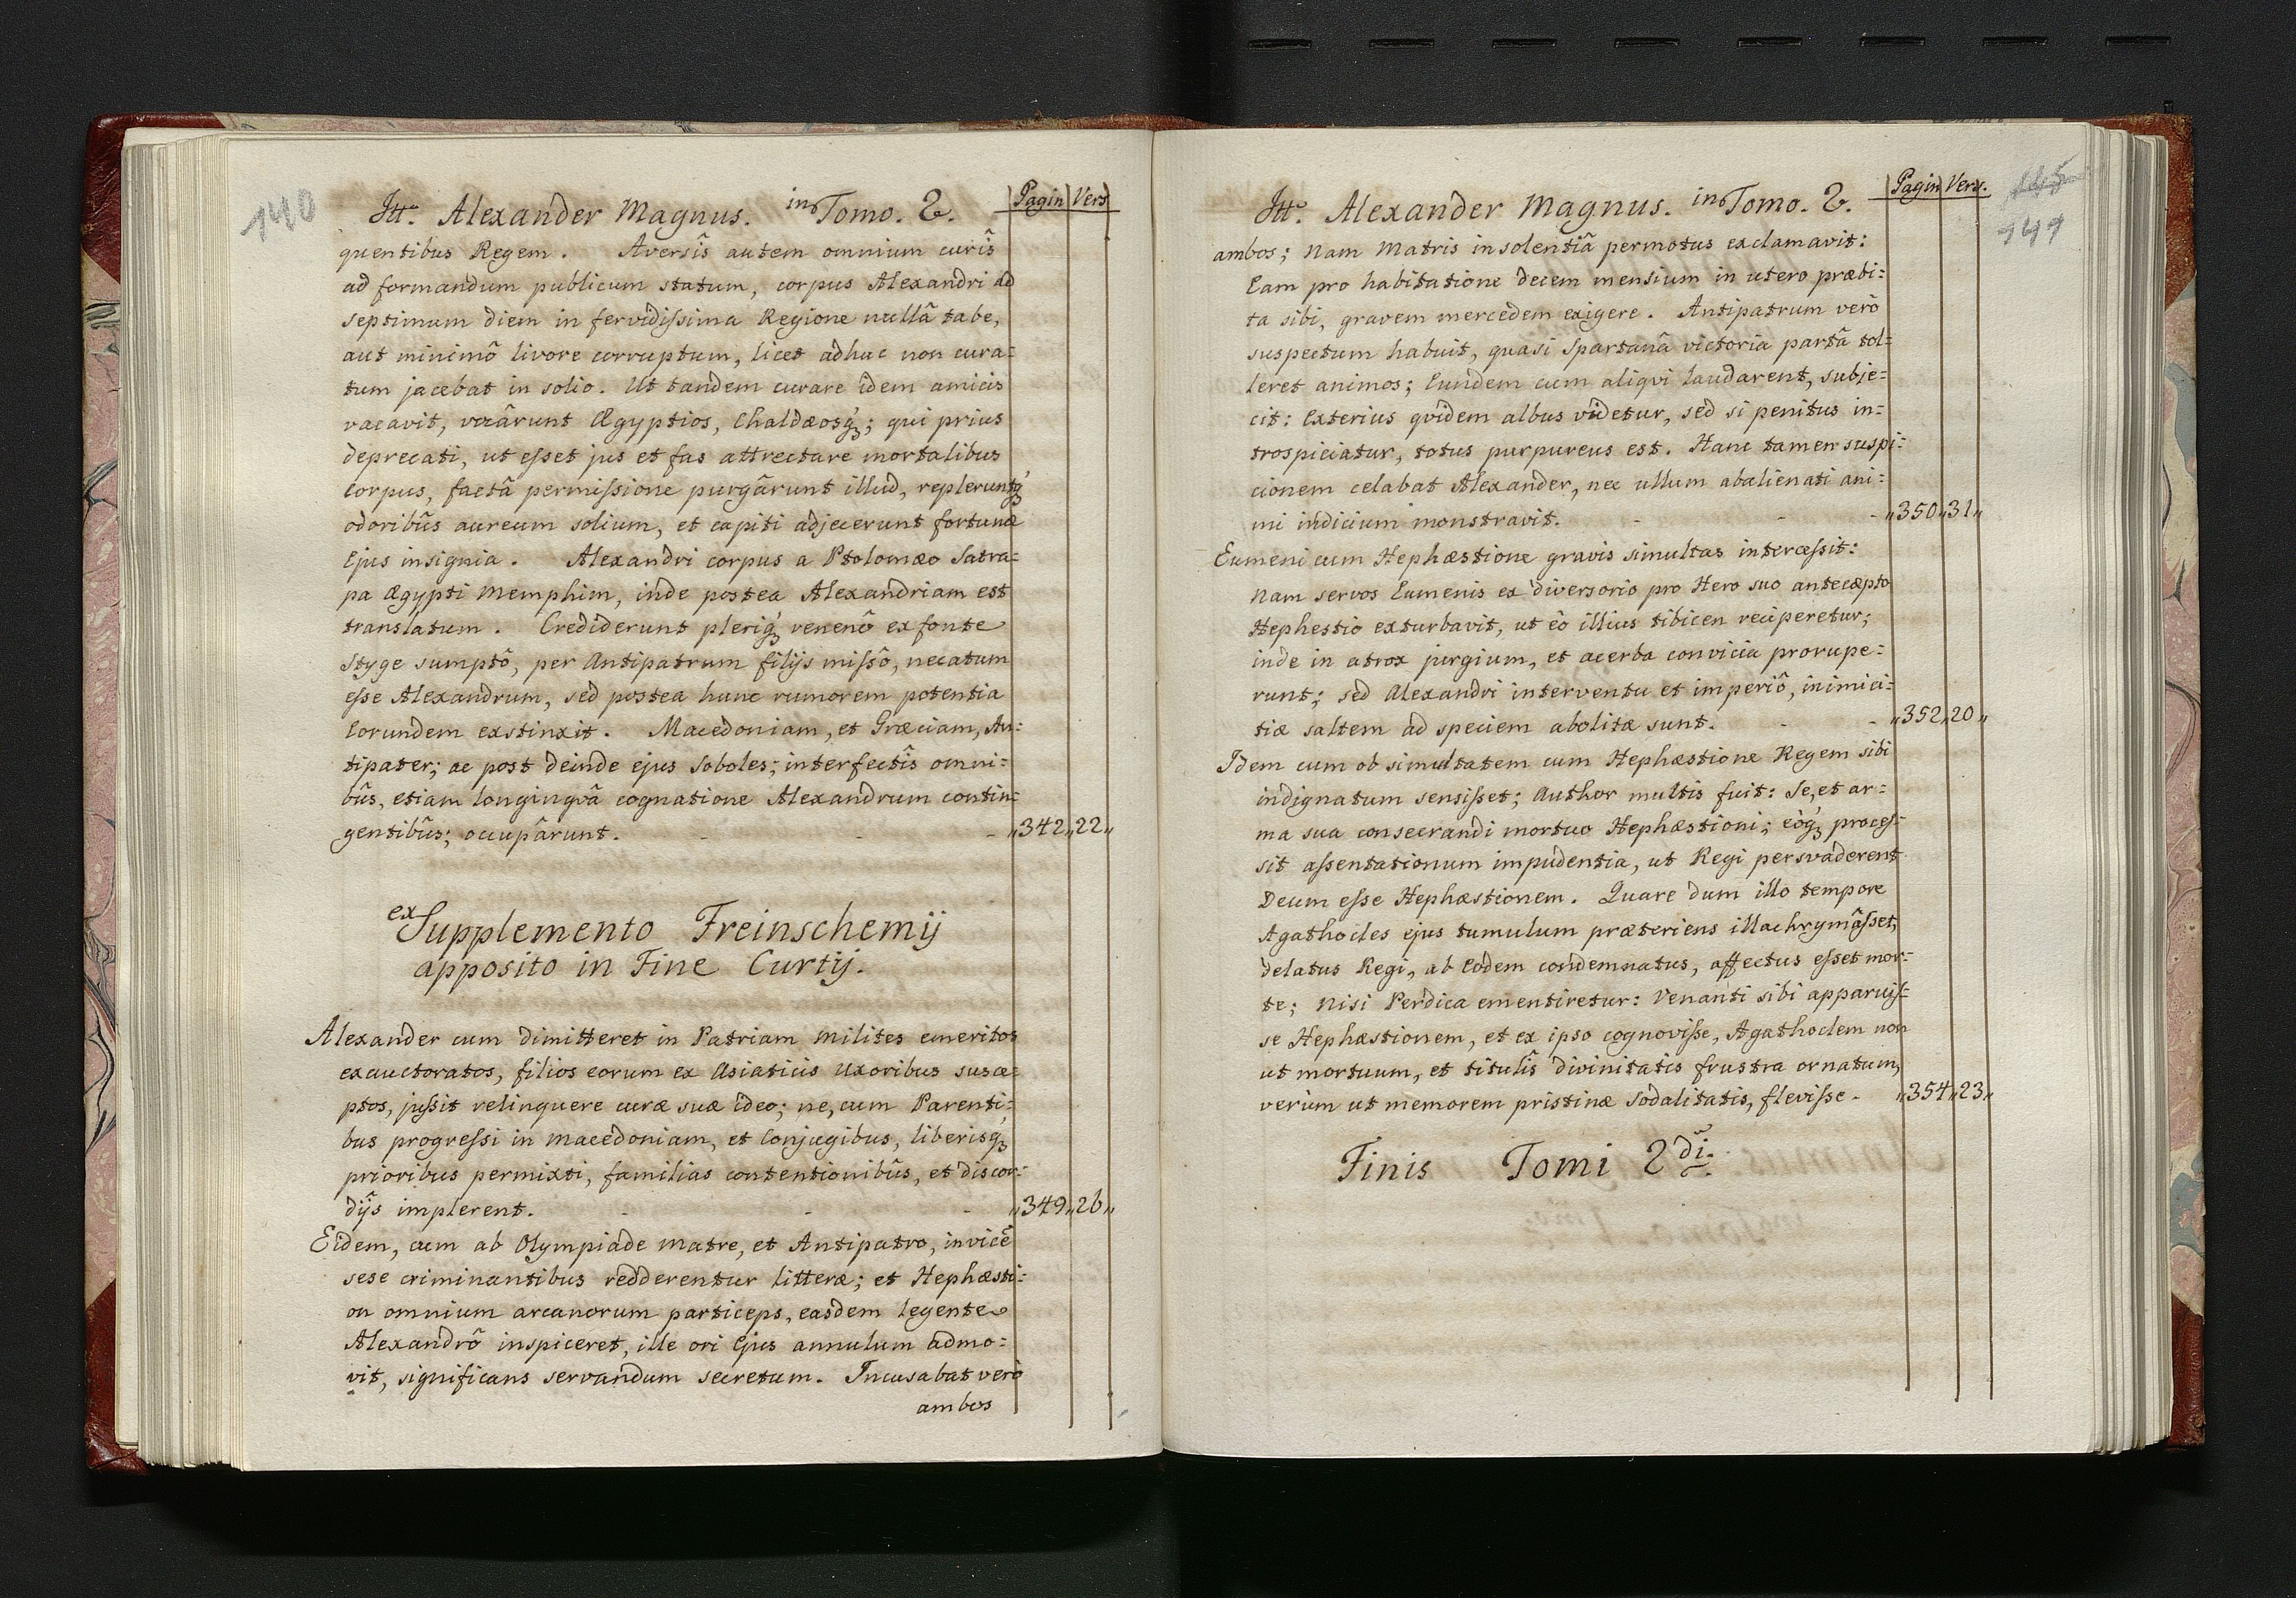 140
Itt. Alexander Magnus. in Tomo. 2. Pagin Vers
quentibus Regem. Aversîs autem omnium curîs
ad formandum publicum statum, corpus Alexandri ad
septimum diem in fervidissima Regione nullâ tabe,
aut minimô livore corruptum, licet adhuc non cura=
tum jacebat in solio. Ut tandem curare idem amicis
vacavit, vocârunt Ægyptios, Chaldæosq́ꝫ; qui prius
deprecati, ut eſset jus et fas attrectare mortalibus
corpus, factâ permiſsione purgârunt illud, repleruntq́ꝫ
odoribûs aureum solium, et capiti adjecerunt fortunæ
Ejus insignia. Alexandri corpus a Ptolomæo Satra=
pa Ægypti Memphim, inde postea Alexandriam est
translatum. Crediderunt pleriq́ꝫ venenô ex fonte
Styge sumptô, per Antipatrum filijs miſsô, necatum
eſse Alexandrum, sed postea hunc rumorem potentia
Eorundem exstinxit. Macedoniam, et Græciam, An=
tipater; ac post deinde ejus Soboles; interfectîs omni=
bûs, etiam longinqvâ cognatione Alexandrum contin=
gentibûs; occupârunt. - - - „342„22„
ex Supplemento Freinschemij
apposito in Fine Curtij.
Alexander cum dimitteret in Patriam Milites emeritos
exauctoratos, filios eorum ex Asiaticis Uxoribus susce=
ptos, juſsit relinquere curæ suæ ideo; ne, cum Parenti=
bus progreſsi in Macedoniam, et Conjugibus, liberisqꝫ
prioribus permixti, familias contentionibûs, et discor=
dijs implerent. - - - „349„26„
Eidem, cum ab Olympiade Matre, et Antipatro, invicē
sese criminantibus redderentur litteræ; et Hephæsti=
on omnium arcanorum particeps, easdem legente
Alexandrô inspiceret, ille ori Ejus annulum admo=
vit, significans servandum secretum. Incusabat verò
ambos
Itt. Alexander Magnus. in Tomo. 2. Pagin Vers.
141
ambos; Nam Matris insolentiâ permotus exclamavit:
Eam pro habitatione decem mensium in utero præbi=
ta sibi, gravem mercedem exigere. Antipatrum verò
suspectum habuit, quasi Spartanâ victoria partâ tol=
leret animos; Eundem cum aliqvi laudarent, subje=
cit: Exterius qvidem albus videtur, sed si penitus in=
trospiciatur, totus purpureus est. Hanc tamen suspi=
cionem celabat Alexander, nec ullum abalienati ani=
mi indicium monstravit. - - - „350„31„
Eumeni cum Hephæstione gravis simultas interceſsit:
Nam servos Eumenis ex diversorio pro Hero suo antecæpto
Hephestio exturbavit, ut eò illius tibicen reciperetur;
inde in atrox jurgium, et acerba convicia prorupe=
runt; sed Alexandri interventu et imperiô, inimici=
tiæ saltem ad speciem abolitæ sunt. - - „352„20„
Idem cum ob simultatem cum Hephæstione Regem sibi
indignatum sensiſset; Author multis fuit: Se, et ar=
ma sua consecrandi mortuo Hephæstioni; eòq́ꝫ proceſ=
sit aſsentationum impudentia, ut Regi persvaderent
Deum eſse Hephæstionem. Quare dum illo tempore
Agathocles ejus tumulum præteriens illachrymâſset,
delatus Regi, ab Eodem condemnatus, affectus eſset mor=
te; Nisi Perdica ementiretur: Venanti sibi apparuiſ=
se Hephæstionem, et ex ipso cognoviſse, Agathoclem non
ut mortuum, et titulîs divinitatis frustra ornatum,
verùm ut memorem pristinæ Sodalitatis, fleviſse. - „354„23„
Finis Tomi 2di.